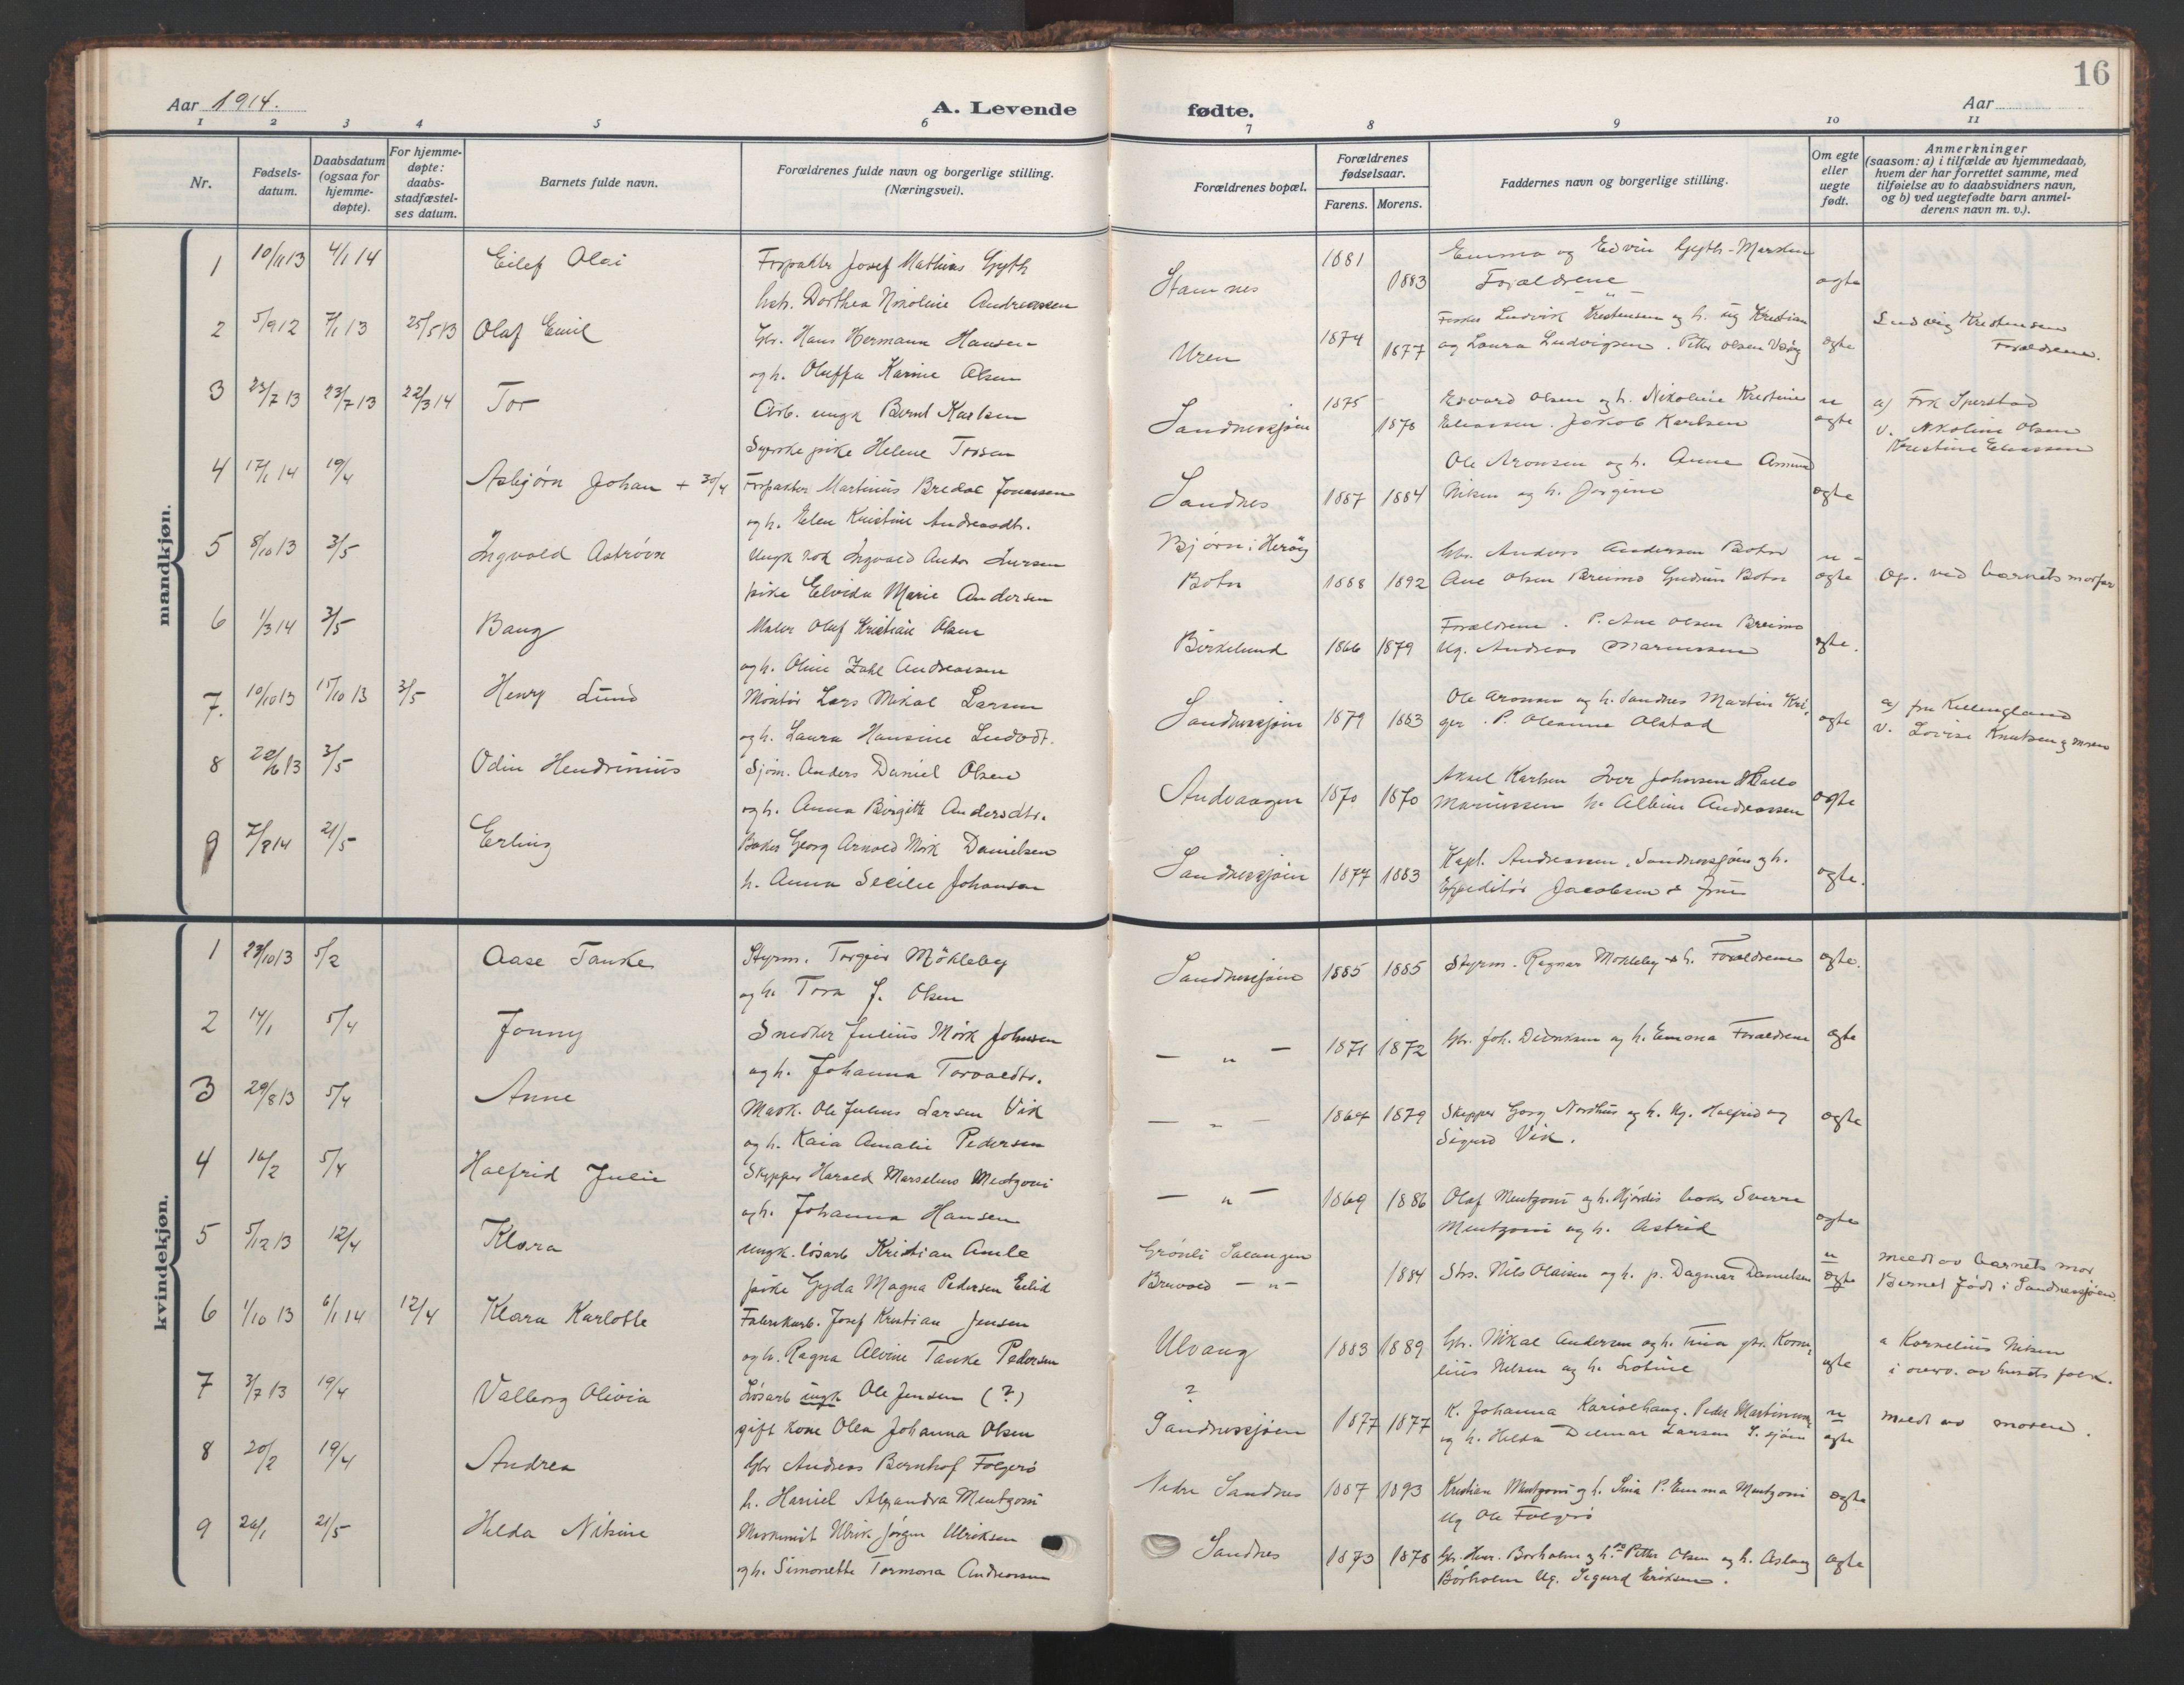 16
Aar 1914.
A. Levende fødte.
Aar
1 2 3 4 5 6 7 8 9 10 11
Nr.
Fødsels-datum.
Daabsdatum (ogsaa for hjemme-døpte).
For hjemme-døpte: daabs-stadfæstel-ses datum.
Barnets fulde navn.
Forældrenes fulde navn og borgerlige stilling. (Næringsvei).
Forældrenes bopæl.
Forældrenes fødselsaar.
Farens. Morens.
Faddernes navn og borgerlige stilling.
Om egte eller uegte født.
Anmerkninger (saasom: a) i tilfælde av hjemmedaab, hvem der har forrettet samme, med tilføielse av to daabsvidners navn, og b) ved uegtefødte barn anmel-derens navn m. v.).
mandkjøn.
1 10/11 13 4/1 14 Eilef Olai Forpakter Josef Mathias Gyth Stamnes 1881 Emma og Edvin Gyth-Marsken
hstr. Dorthea Nikoline Andreassen 1883 Forældrene ægte
2 5/9 12 7/1 13 25/5 13 Olaf Emil Gbr. Hans Hermann Hansen Uren 1874 Fisker Ludvik Kristensen og h. Ug Kristian Ludvig Kristensen
og h. Oluffa Karine Olsen 1877 og Laura Ludvigsen. Petter Olsen ægte Forældrene.
3 23/7 13 23/7 13 22/3 14 Tor Arb. ungk Bernt Karlsen Sandnessjøen 1875 Edvard Olsen og h. Nikoline Kristine u a) Frk Sperstad
Syerske pike Helene Torsen 1878 Eliassen. Jakob Karlsen ægte v. Nikoline Olsen
Kristine Eliassen
4 17/1 14 19/4 Asbjørn Johan + 30/4 Forpakter Martinus Bredal Jonassen Sandnes 1887 1884 Ole Aronsen og h. Anne
og h. Elen Kristine Andreasdtr. Nilsen og h. Jørgine ægte
5 8/10 13 3/5 Ingvald Astrøvn Ungk Ingvald Anton Iversen Bjørn i Herøy Gbr. Anders Andersen Botn u -
pike Elvida Marie Andersen Botn 1888 1892 Ane Olsen Breimo Gudrun Botn ægte Op. ved barnets morfar
6 1/3 14 3/5 Bang Maler Olaf Kristian Olsen Birkelund 1866 1879 Forældrene. P. Ane Olsen Breimo
og h. Oline Zahl Andreassen Ug. Andreas Mariussen ægte.
7. 10/10 13 15/10 13 3/5 Henry Lund Montør Lars Mikal Larsen Sandnessjøen 1879 1883 Ole Aronsen og h. Sandnes Martin Kri- a) fru Killengland
og h. Laura Hansine Ludvdt. ger. P. Oleanna Olstad ægte v. Lovise Knutsen og moren
8 22/6 13 3/5 Odin Hendrinius Sjøm. Anders Daniel Olsen Andvaagen 1870 1870 Aksel Karlsen Iver Johnsen
og h. Anna Birgitte Andersdtr. Mariussen h. Albine Andreassen ægte
9 7/2 14 21/5 Erling Baker Georg Arnold Mørk Danielsen Sandnessjøen 1877 1883 Kapt. Andreassen, Sandnessjøen og h.
h. Anna Secilie Johansen Expeditør Jacobsen & frue ægte.
kvindekjøn.
1 23/10 13 5/2 Aase Tanke Styrm. Torgeir Mökleby Sandnessjøen 1885 1885 Styrm. Ragnar Mökleby & h. Forældrene ægte.
og h. Tora J. Olsen
2 14/1 5/4 Jonny Snedker Julius Mørk Johnsen — „ — 1871 1872 Gbr. Joh. Didriksen og h. Emma Forældrene ægte
og h. Johanna Torvaldtr.
3 29/8 13 5/4 Anne Mask. Ole Julius Larsen Vik — „ — 1867 1879 Skipper Georg Nordhus og h. Ug. Halfrid og ægte
og h. Kaia Amalie Pedersen Sigurd Vik.
4 16/2 5/4 Halfrid Julie Skipper Harald Marselius Mentzoni — „ — 1869 1886 Olaf Mentzoni og h. Hjördis baker Sverre
og h. Johanna Hansen Mentzoni og h. Astrid ægte
5 5/12 13 12/4 Klara ungk. løsarb Kristian Amle Grønli Salangen u meldt av barnets mor
pike Gyda Magna Pedersen Eilid Bruvold — „ — 1884 Strs. Nils Olaisen og h. p. Dagmar Danielsen ægte Barnet født i Sandnessjøen.
6 1/10 13 6/1 14 12/4 Klara Karlotte Fabrikarb. Josef Kristian Jensen Ulvang 1883 1889 Gbr. Mikal Andersen og h. Trina gbr. Korne- a Kornelius Nilsen
og h. Ragna Alvine Tanke Pedersen lius Nilsen og h. Lotine ægte i overv. av husets folk.
7 3/7 13 19/4 Valborg Olivia Løsarb ungk Ole Jensen (?) ? K. Johanna Karisehaug. Peder Martinussen u Meldt av moren.
gift kone Olea Johanna Olsen Sandnessjøen 1877 1877 og h. Hilda Dilmar Larsen S. sjøen ægte
8 20/2 19/4 Andrea Gbr Andreas Bernhof Folgerø Nedre Sandnes 1887 1893 Kristian Mentzoni og h. Sina P. Emma Mentzoni ægte
h. Harriel Alexandra Mentzoni Ug Ole Folgerø
9 26/1 21/5 Hilda Nikine Ulrik Jörgen Ulriksen Sandnes 1873 1878 Gbr. Borholm og h. Petter Olsen og h. Aslaug ægte
og h. Simonette Tormona Andreassen Borholm Ug. Sigurd Eriksen.